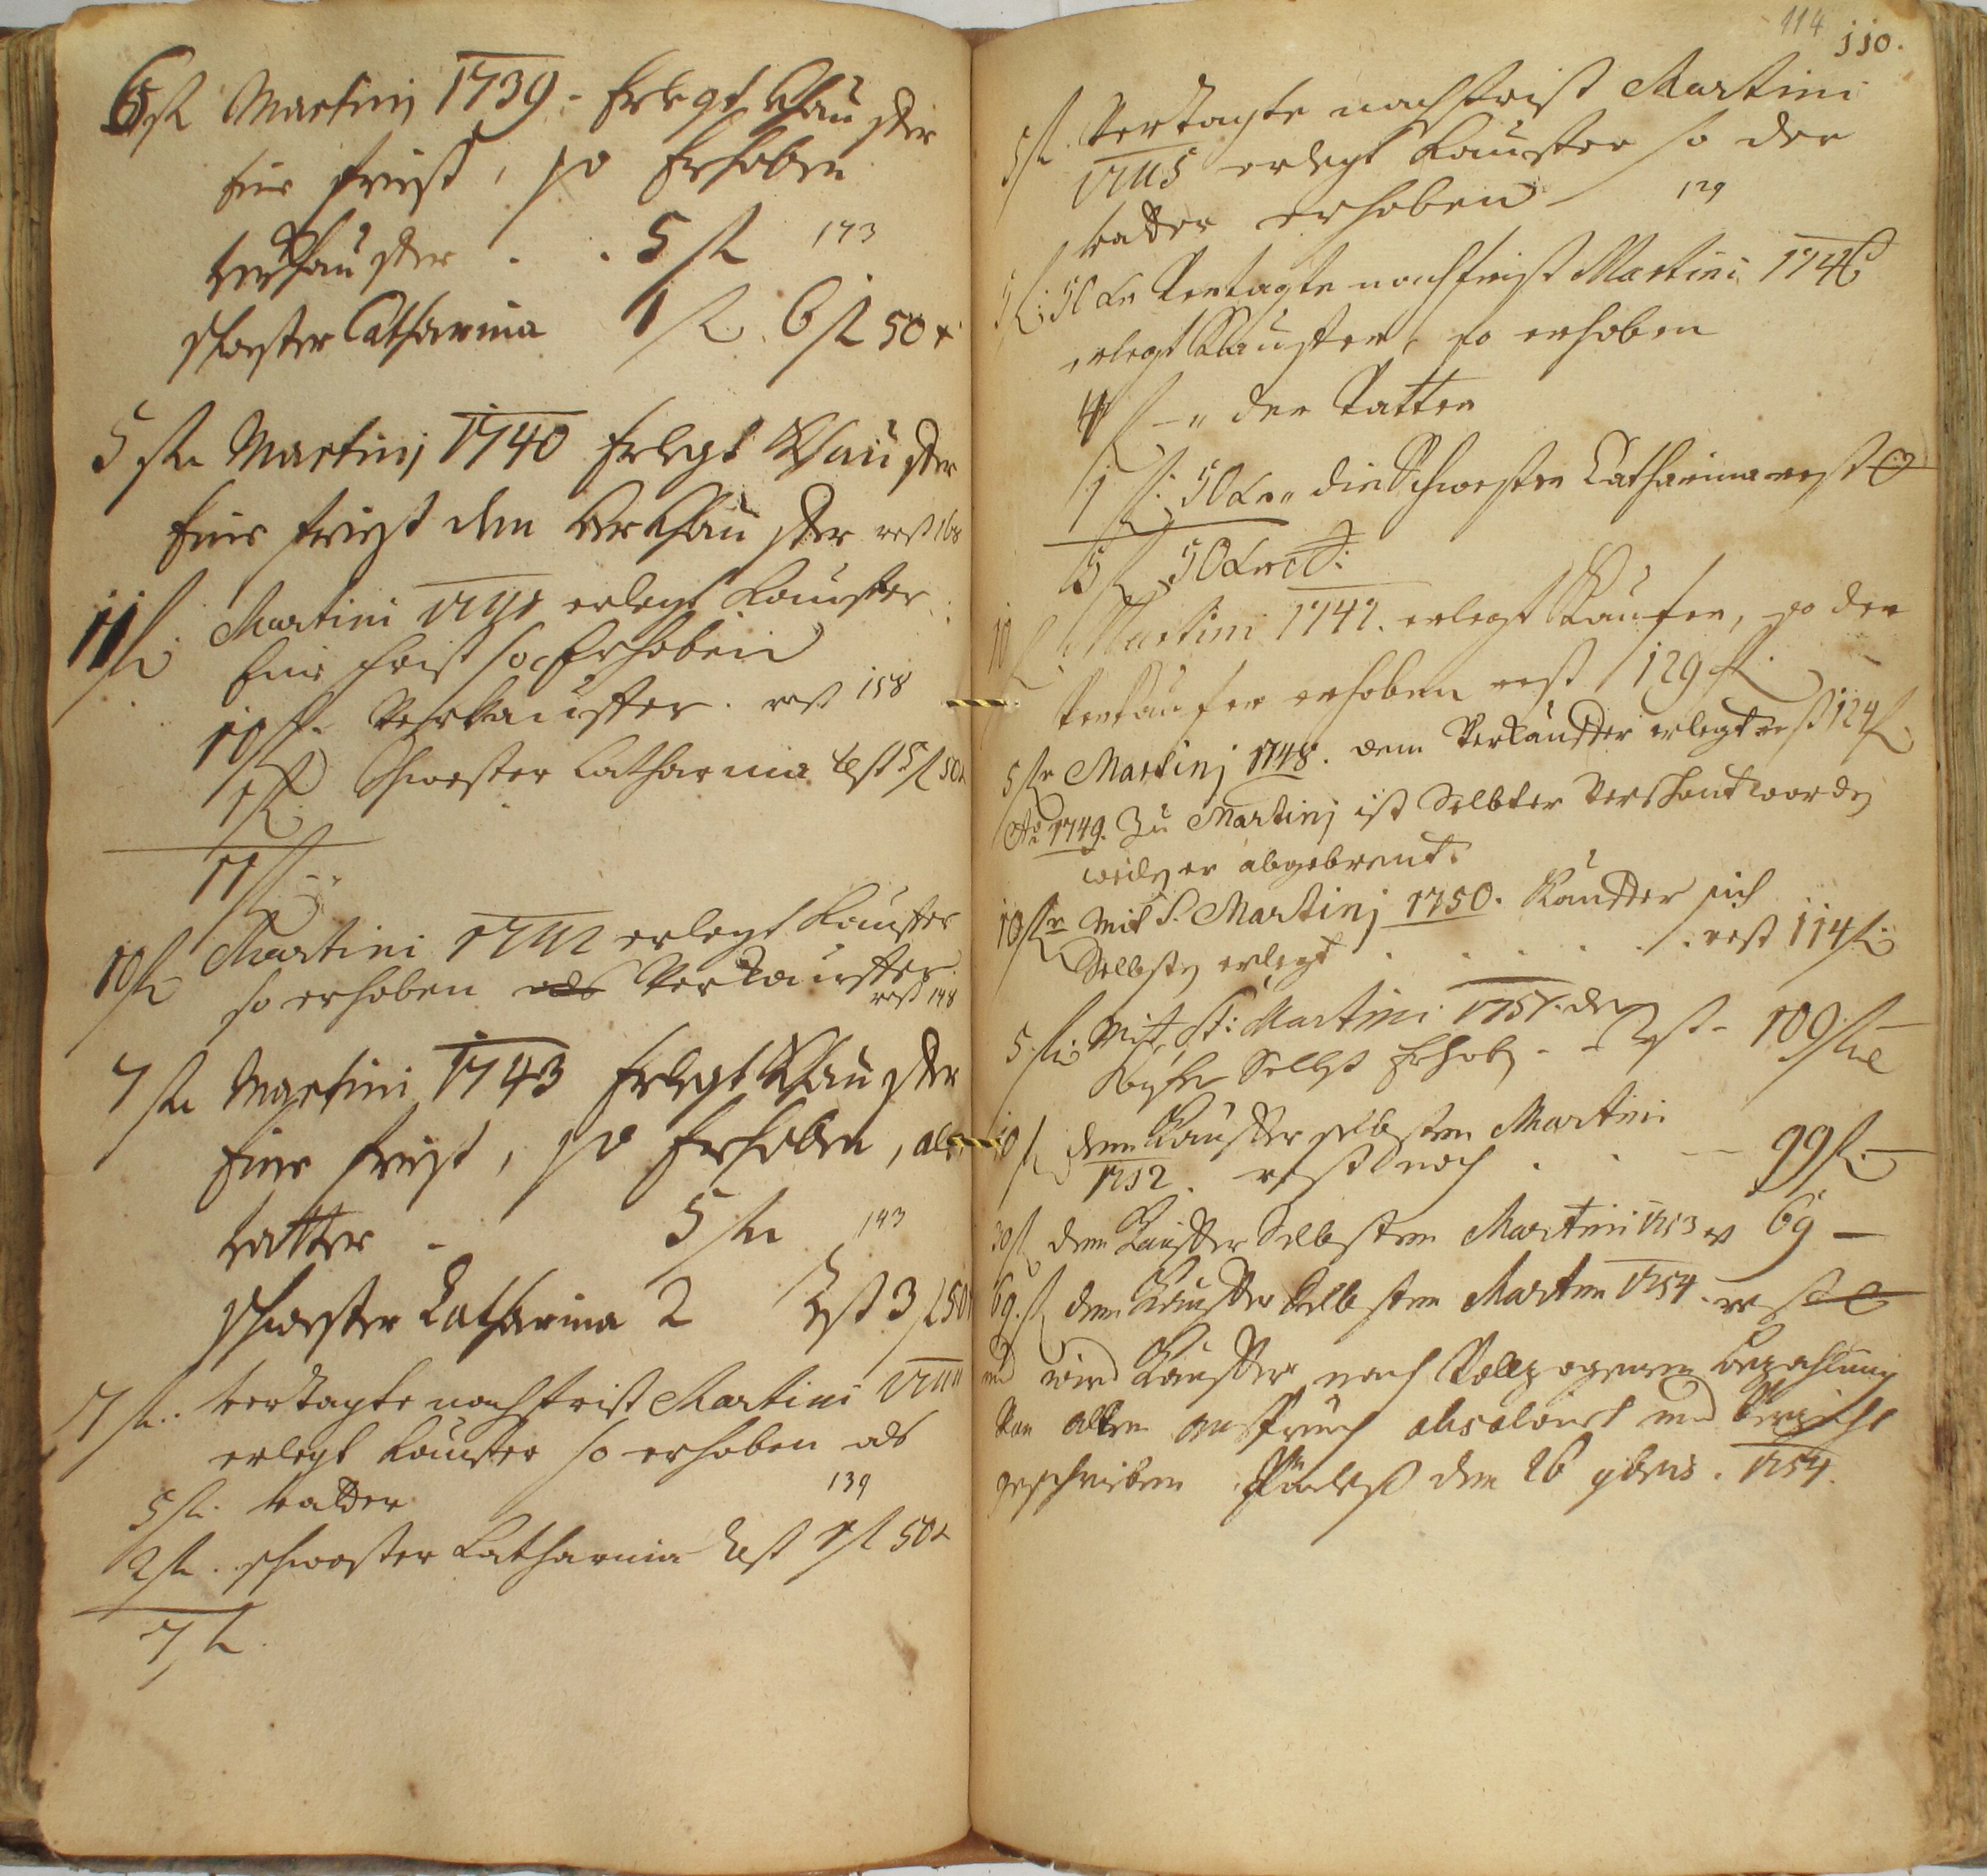 6 fl Martinj 1739 - Erlegt Khauffer
Eine frist, so Erhoben
verkhauffer . . 5 fl 173
schwester Catharina 1 fl. 6 fl 50 x
5 fl Martinj 1740 Erlegt Khauffer
Eine frist dem verkhauffer rest 168
11 fl: Martini 1741 erlegt Kauffer
Eine frist so Erhoben
10 fl. Verkauffer. rest 158
1 fl: Schwester Catharina rest 5 fl 50 x
11 fl --
10 fl Martini 1742 erlegt Kauffer
so erhoben als Verkauffer
rest 148
7 fl Martini 1743 Erlegt Khauffer
Eine frist, so Erhoben, als
vatter - 5 fl 143
schwester Catharina 2 Rest 3 fl 50
7 fl. vertagte nachfrist Martini 1744
erlegt Kauffer so erhoben als
5 fl. vatter 139
2 fl. schwester Catharina Rest 1 fl 50 x
7 fl.
114
110.
5 fl. Vertagte nachfrist Martini
1745 erlegt Kauffer so der
vatter erhoben 129
5 fl: 50 xr Vertagte nachfrist Martini 1746
erlegt Kauffer, so erhoben
4 fl - " der Vatter
1 fl: 50 xr " die Schwester Catharina rest 0
5 fl 50 xr
10 fl: Martini 1747. erlegt Kaufer, so der
Verkaufer erhoben rest 129 fl.
5 fl Martinj 1748. dem Verkauffer erlegt rest 124 fl.
Ao 1749. Zu Martinj ist Selbter Verschont worden
weilen er abgebrent.
10 fl mit S. Martinj 1750. Kauffer sich
Selbsten erlegt . . . . . . rest 114 fl:
5 fl: Mit St: Martini 1751. der
Selbst Erhoben - Rest - 109 fl
10 fl dem Kauffer selbsten Martini
1752. rest noch . . -- 99 fl. -
30 fl dem Kauffer Selbsten Martini 1753 rest 69 -
69. fl dem Kauffer Selbsten Martini 1754. rest 0
und wird Kauffer nach Vollzogenen bezahlung
Von allen anspruch absolvirt und Verzicht
geschrieben den 26 9bris. 1754.